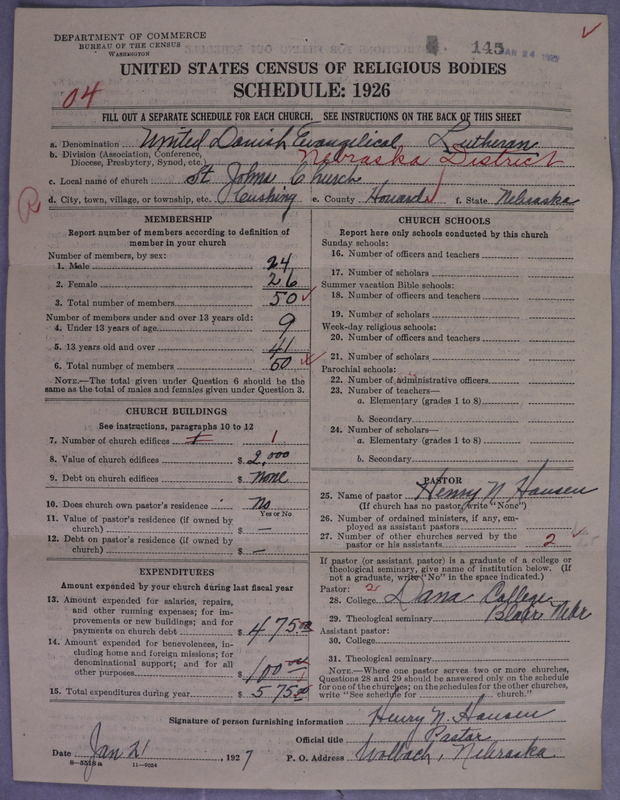 DEPARTMENT OF COMMERCE
BUREAU OF THE CENSUS
WASHINGTON
145
JAN 24 1927
UNITED STATES CENSUS OF RELIGIOUS BODIES
SCHEDULE: 1926
04
FILL OUT A SEPARATE SCHEDULE FOR EACH CHURCH. SEE INSTRUCTIONS ON THE BACK OF THIS SHEET
a. Denomination United Danish Evangelical Lutheran
b. Division (Association, Conference, Diocese, Presbytery, Synod, etc.) Nebraska District
c. Local name of church St Johns Church
d. City, town, village, or township, etc. Cushing e. County Howard f. State Nebraska
R
MEMBERSHIP
Report number of members according to definition of
member in your church
Number of members, by sex:
1. Male 24
2. Female 26
3. Total number of members 50
Number of members under and over 13 years old:
4. Under 13 years of age 9
5. 13 years old and over 41
6. Total number of members 50
NOTE.—The total given under Question 6 should be the
same as the total of males and females given under Question 3.
CHURCH BUILDINGS
See instructions, paragraphs 10 to 12
7. Number of church edifices 1 1
8. Value of church edifices $ 2,000
9. Debt on church edifices $ none
10. Does church own pastor's residence No
Yes or No
11. Value of pastor's residence (if owned by
church) $ —
12. Debt on pastor's residence (if owned by
church) $ —
EXPENDITURES
Amount expended by your church during last fiscal year
13. Amount expended for salaries, repairs,
and other running expenses; for im-
provements or new buildings; and for
payments on church debt $ 475.00
14. Amount expended for benevolences, in-
cluding home and foreign missions; for
denominational support; and for all
other purposes $ 100.00
15. Total expenditures during year $ 575.00
CHURCH SCHOOLS
Report here only schools conducted by this church
Sunday schools:
16. Number of officers and teachers
17. Number of scholars
Summer vacation Bible schools:
18. Number of officers and teachers
19. Number of scholars
Week-day religious schools:
20. Number of officers and teachers
21. Number of scholars
Parochial schools:
22. Number of administrative officers
23. Number of teachers—
a. Elementary (grades 1 to 8)
b. Secondary
24. Number of scholars—
a. Elementary (grades 1 to 8)
b. Secondary
PASTOR
25. Name of pastor Henry N. Hansen
(If church has no pastor, write "None")
26. Number of ordained ministers, if any, em-
ployed as assistant pastors
27. Number of other churches served by the
pastor or his assistants 2
If pastor (or assistant pastor) is a graduate of a college or
theological seminary, give name of institution below. (If
not a graduate, write "No" in the space indicated.)
Pastor:
28. College Dana College
Blair Nebr
29. Theological seminary
Assistant pastor:
30. College
31. Theological seminary
NOTE.—Where one pastor serves two or more churches,
Questions 28 and 29 should be answered only on the schedule
for one of the churches; on the schedules for the other churches,
write "See schedule for church."
Signature of person furnishing information Henry N. Hansen
Official title Pastor
Date Jan 21, 1927 P. O. Address Wolbach, Nebraska
8—5518a 11—9034